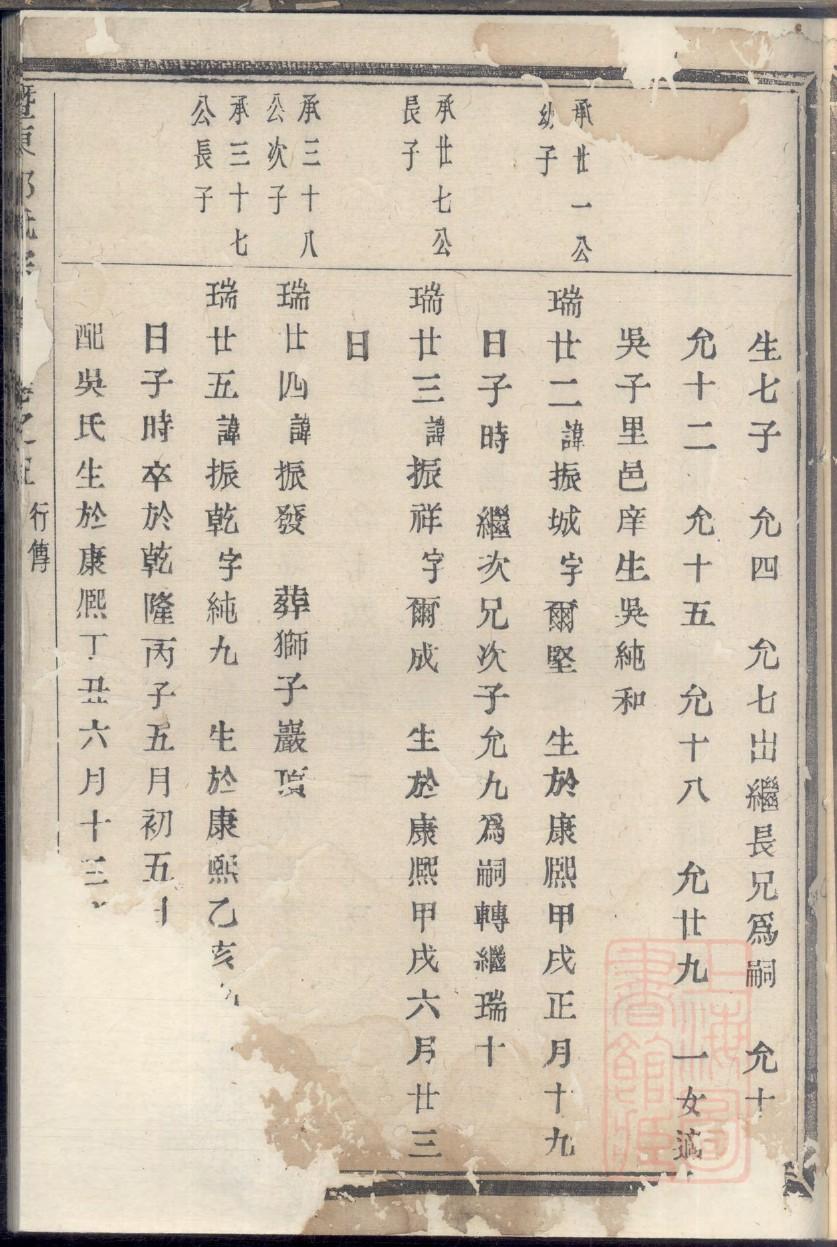 生七子　允四　允七出繼長兄爲嗣　允十
允十二　允十五　允十八　允廿九　一女適
吳子里邑庠生吳純和
承廿一公
幼子
瑞廿二諱振城字爾堅　生於康熙甲戌正月十九
日子時　繼次兄次子允九爲嗣轉繼瑞十
承廿七公
長子
瑞廿三諱振祥字爾成　生於康熙甲戌六月廿三
日
承三十八
公次子
瑞廿四諱振發　葬獅子巖頂
承三十七
公長子
瑞廿五諱振乾字純九　生於康熙乙亥
日子時卒於乾隆丙子五月初五日
配吳氏生於康熙丁丑六月十三
暨東
之五
行傳
上海圖
書館藏